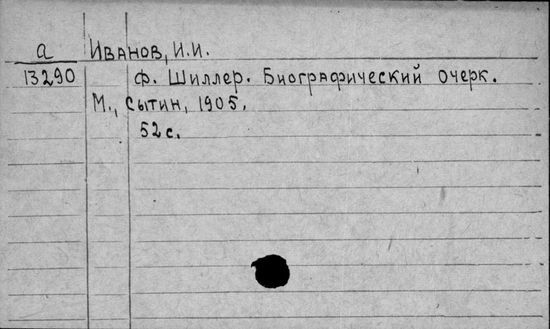 а Иванов, И.И.
13290 Ф. Шиллер. Биографический очерк.
М., Сытин, 1905.
52 с.